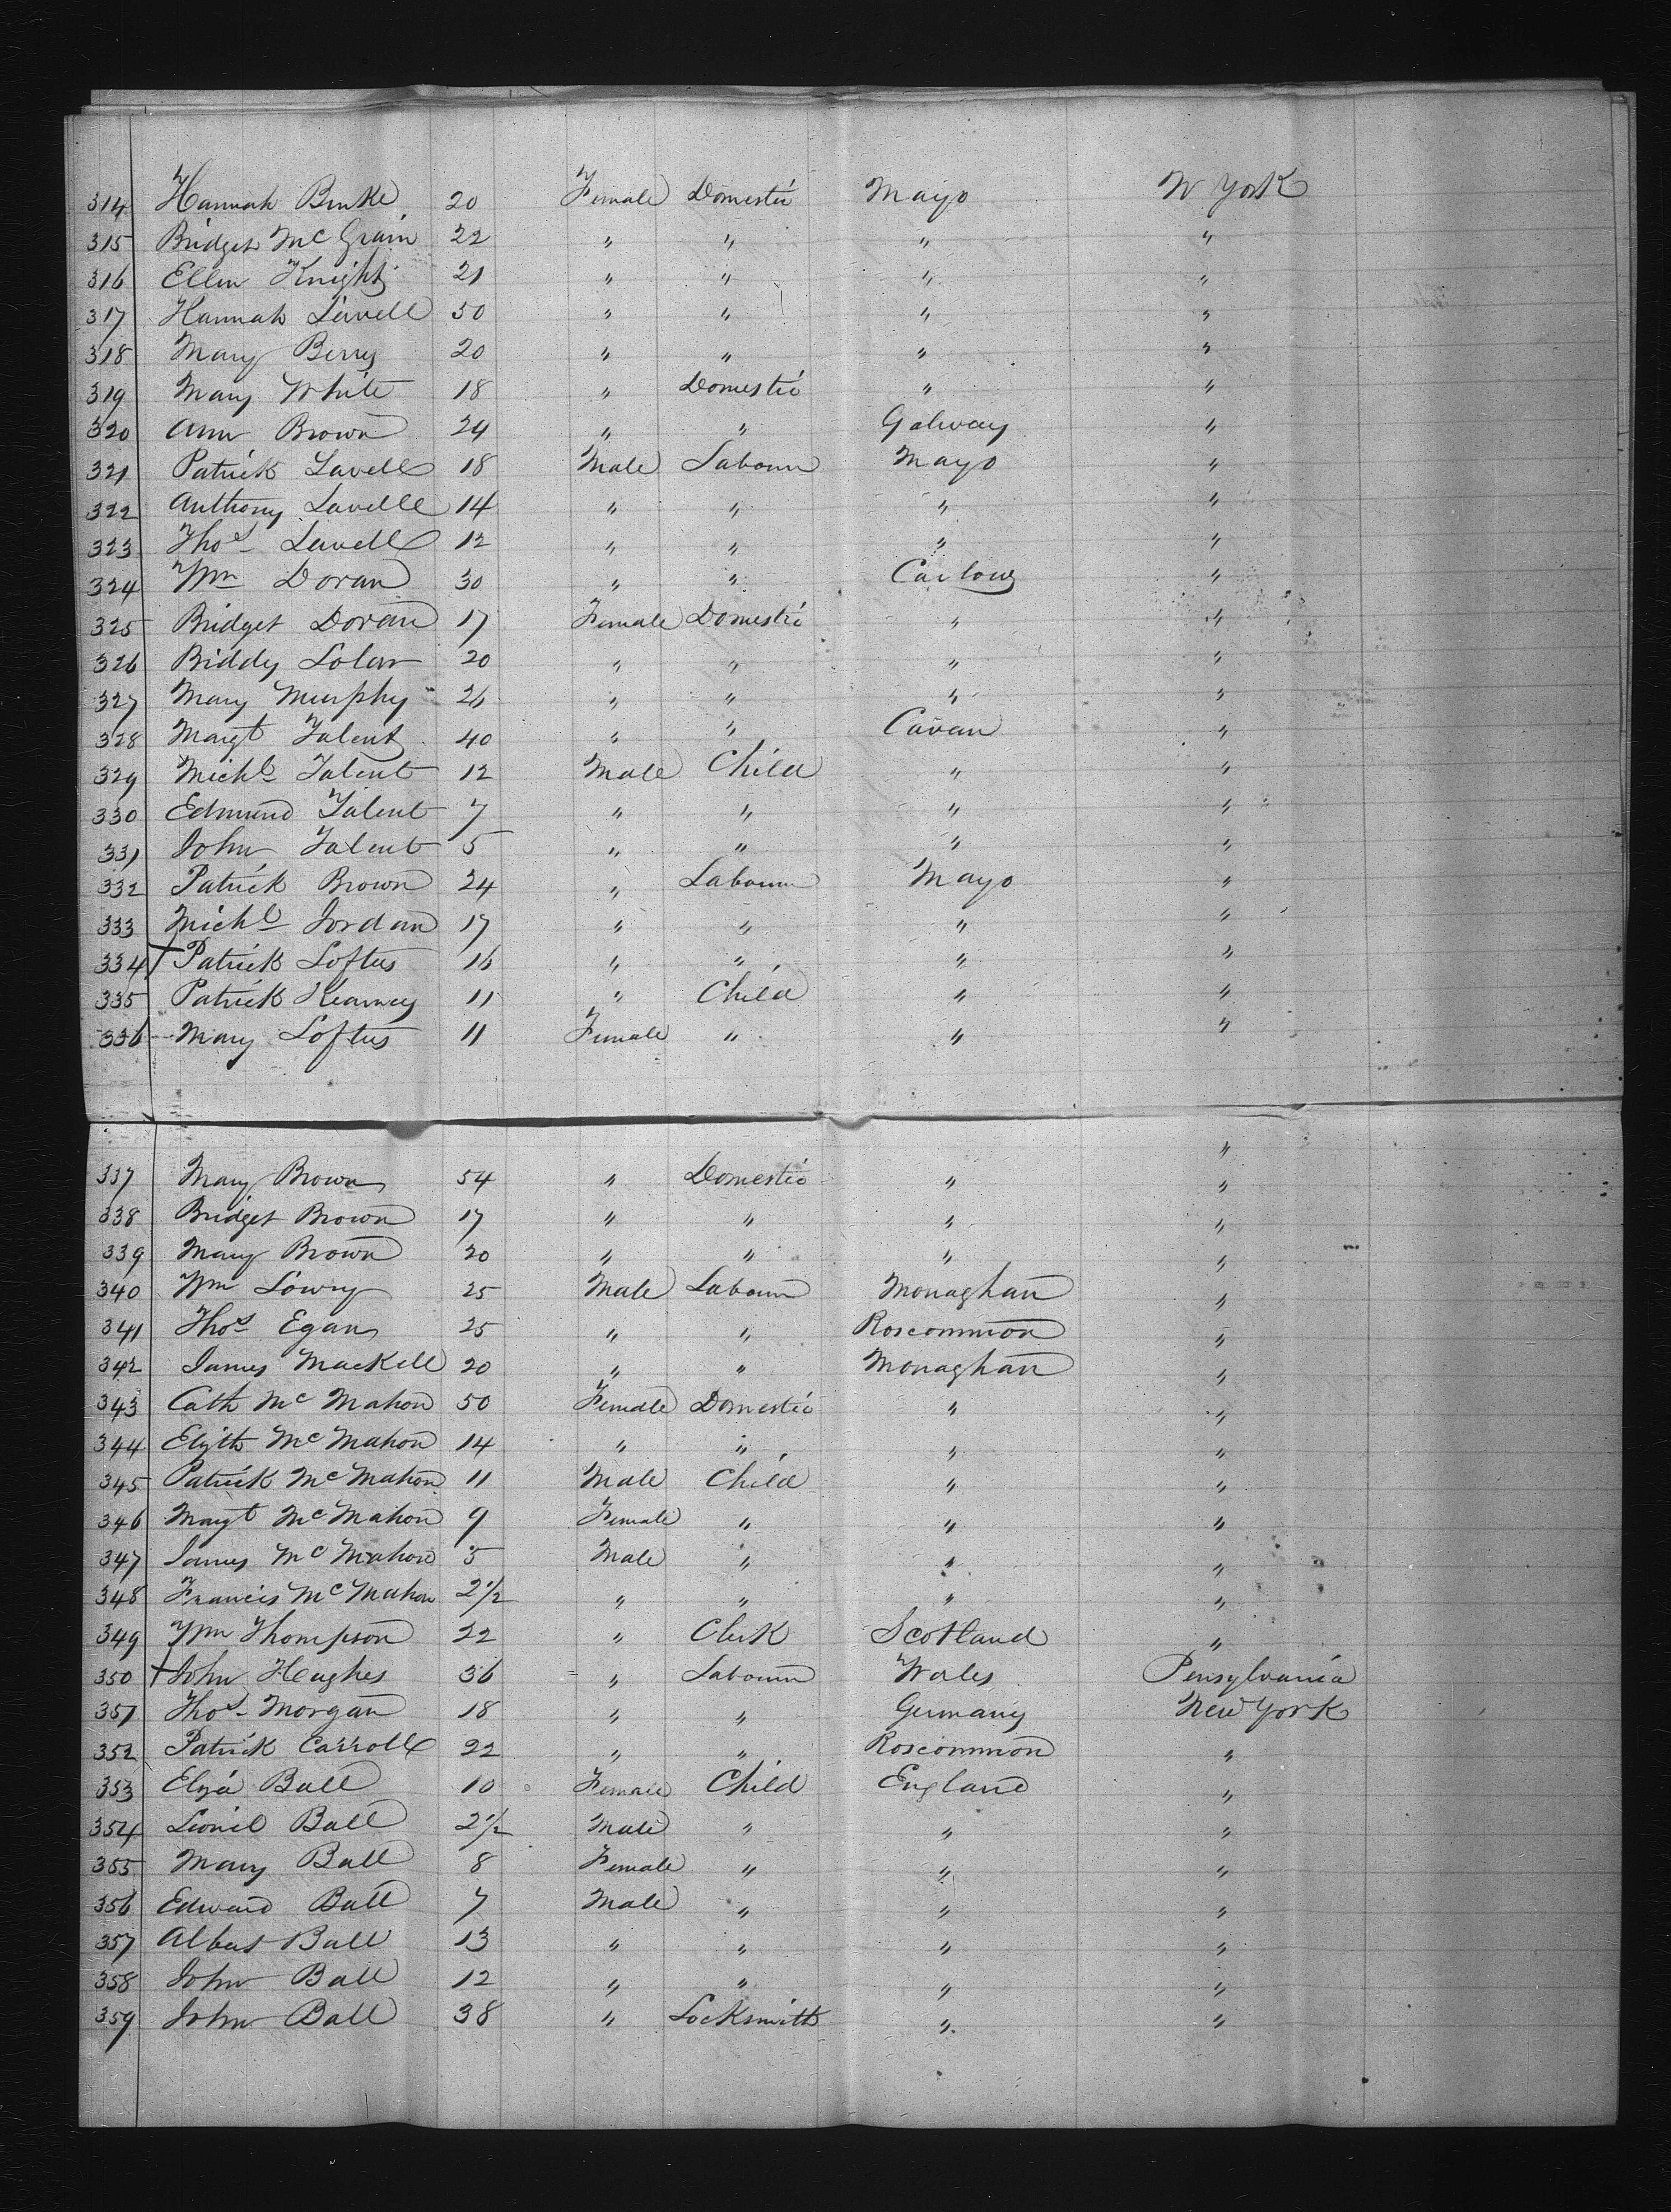 314 Hannah Burke 20 Female Domestic Mayo N York
315 Bridget McGrain 22 " " " "
316 Ellen Knight 21 " " " "
317 Hannah Lavell 30 " " " "
318 Mary Berry 20 " " " "
319 Mary White 18 " Domestic " "
320 Ann Brown 24 " " Galway "
321 Patrick Lavell 18 Male Labourer Mayo "
322 Anthony Lavelle 14 " " " "
323 Thos Lavell 12 " " " "
324 Wm Doran 30 " " Carlow "
325 Bridget Doran 17 Female Domestic " "
326 Biddy Solan 20 " " " "
327 Mary Murphy 26 " " " "
328 Margt Talent 40 " " Cavan "
329 Michl Talent 12 Male Child " "
330 Edmund Talent 7 " " " "
331 John Talent 5 " " " "
332 Patrick Brown 24 " Labourer Mayo "
333 Michl Jordan 17 " " " "
334 Patrick Loftus 16 " " " "
335 Patrick Kearney 11 " Child " "
336 Mary Loftus 11 Female " " "
"
337 Mary Brown 54 " Domestic " "
338 Bridget Brown 17 " " " "
339 Mary Brown 20 " " " "
340 Wm Lowry 25 Male Labourer Monaghan "
341 Thos Egan 25 " " Roscommon "
342 James Mackell 20 " " Monaghan "
343 Cath McMahon 50 Female Domestic " "
344 Elizth McMahon 14 " " " "
345 Patrick McMahon 11 Male Child " "
346 Margt McMahon 9 Female " " "
347 James McMahon 5 Male " " "
348 Francis McMahon 2 1/2 " " " "
349 Wm Thompson 22 " Clerk Scotland "
350 John Hughes 36 " Labourer Wales Pensylvania
351 Thos Morgan 18 " " Germany New York
352 Patrick Carroll 22 " " Roscommon "
353 Eliza Ball 10 Female Child England "
354 Lionel Ball 2 1/2 Male " " "
355 Mary Ball 8 Female " " "
356 Edward Ball 7 Male " " "
357 Albert Ball 13 " " " "
358 John Ball 12 " " " "
359 John Ball 38 " Locksmith " "